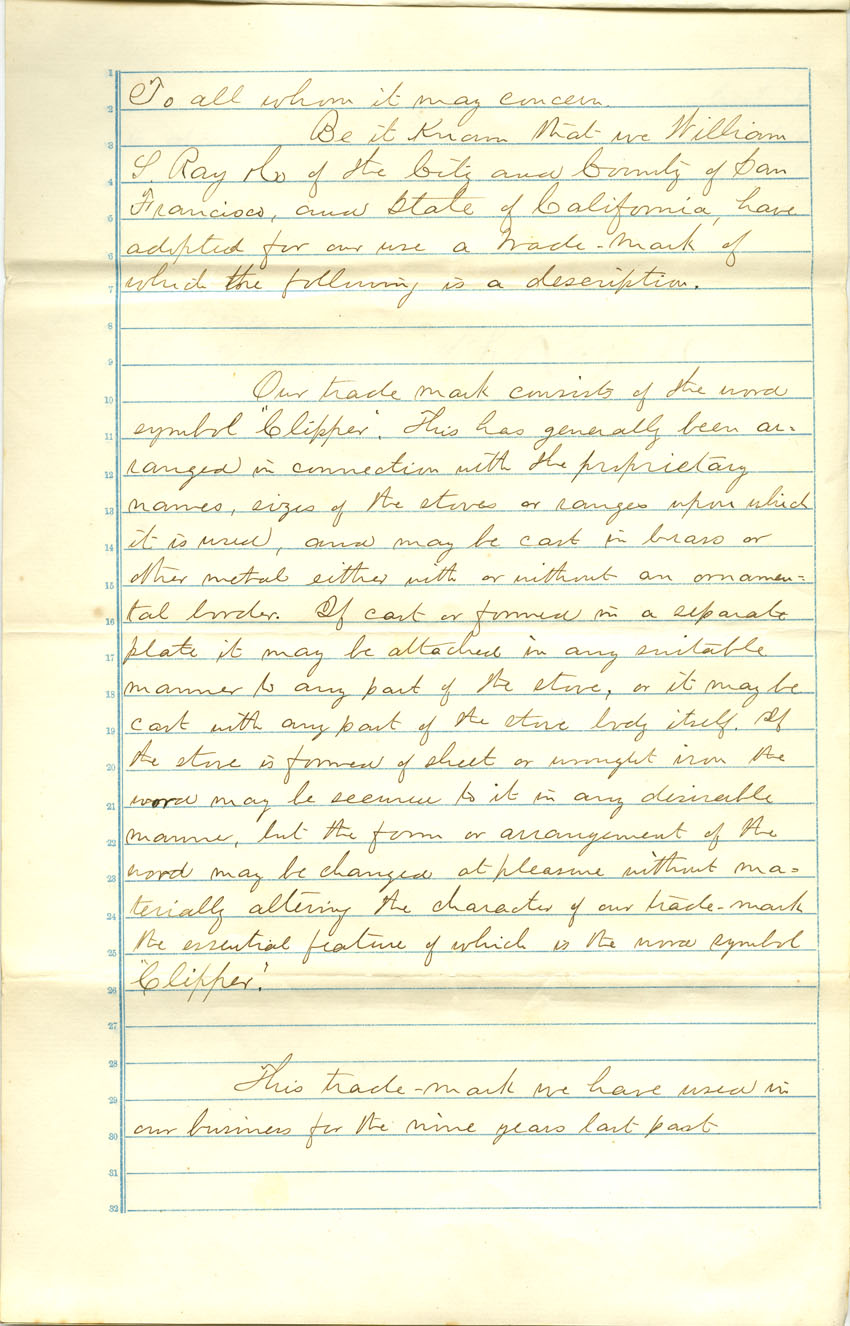 1
To all whom it may concern.
2
Be it Known that we William
3
S. Ray & Co of the City and County of San
4
Francisco, and State of California, have
5
adopted for our use a trade-mark of
6
which the following is a description.
7
8
9
Our trade mark consists of the word
10
symbol "Clipper". This has generally been ar=
11
ranged in connection with the proprietary
12
names, sizes of the stoves or ranges upon which
13
it is used, and may be cast in brass or
14
other metal either with or without an ornamen=
15
tal border. If cast or formed in a separate
16
plate it may be attached in any suitable
17
manner to any part of the stove, or it may be
18
cast with any part of the stove body itself. If
19
the stove is formed of sheet or wrought iron the
20
word may be secured to it in any desirable
21
manner, but the form or arrangement of the
22
word may be changed at pleasure without ma=
23
terially altering the character of our trade-mark
24
the essential feature of which is the word symbol
25
"Clipper."
26
27
28
This trade-mark we have used in
29
our business for the nine years last past
30
31
32